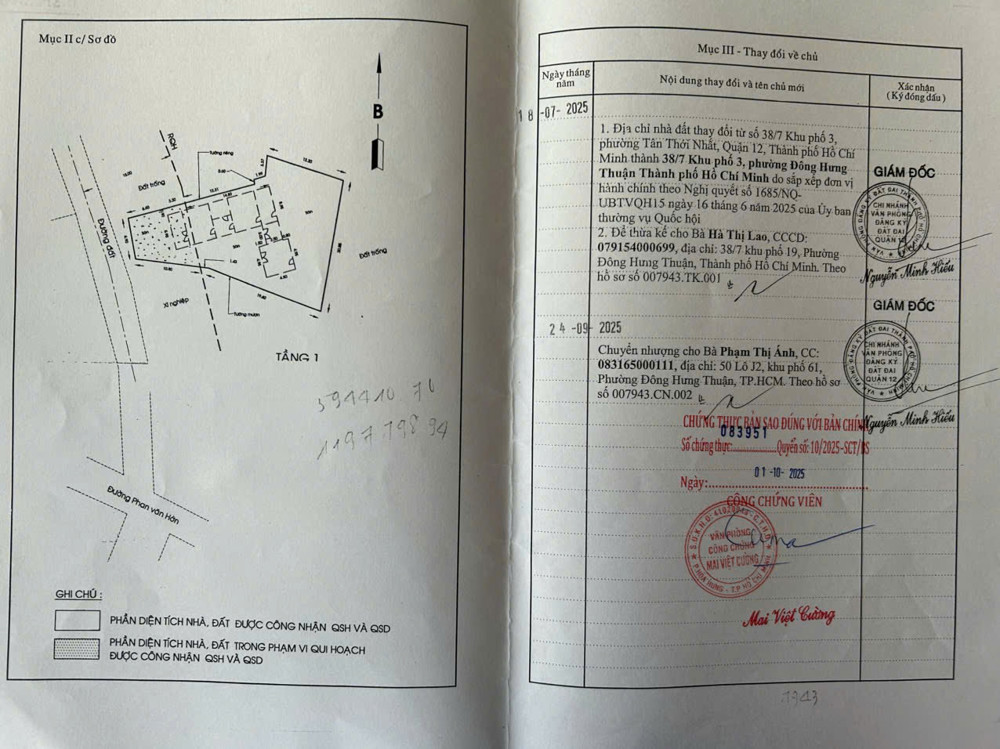 Mục II c/ Sơ đồ
B
RQH
Tường riêng
Đất trống
Đường đất
Đất trống
Xí nghiệp
Tường mượn
TẦNG 1
Đường Phan văn Hớn
GHI CHÚ :
PHẦN DIỆN TÍCH NHÀ, ĐẤT ĐƯỢC CÔNG NHẬN QSH VÀ QSD
PHẦN DIỆN TÍCH NHÀ, ĐẤT TRONG PHẠM VI QUI HOẠCH
ĐƯỢC CÔNG NHẬN QSH VÀ QSD
Mục III - Thay đổi về chủ
Ngày tháng
năm
Nội dung thay đổi và tên chủ mới
Xác nhận
(Ký đóng dấu)
18 -07- 2025
1. Địa chỉ nhà đất thay đổi từ số 38/7 Khu phố 3,
phường Tân Thới Nhất, Quận 12, Thành phố Hồ Chí
Minh thành 38/7 Khu phố 3, phường Đông Hưng
Thuận Thành phố Hồ Chí Minh do sắp xếp đơn vị
hành chính theo Nghị quyết số 1685/NQ-
UBTVQH15 ngày 16 tháng 6 năm 2025 của Ủy ban
thường vụ Quốc hội
2. Để thừa kế cho Bà Hà Thị Lao, CCCD:
079154000699, địa chỉ: 38/7 khu phố 19, Phường
Đông Hưng Thuận, Thành phố Hồ Chí Minh. Theo
hồ sơ số 007943.TK.001
GIÁM ĐỐC
CHI NHÁNH
VĂN PHÒNG
ĐĂNG KÝ
ĐẤT ĐAI
QUẬN 12
Nguyễn Minh Hiếu
24 -09- 2025
Chuyển nhượng cho Bà Phạm Thị Ánh, CC:
083165000111, địa chỉ: 50 Lô J2, khu phố 61,
Phường Đông Hưng Thuận, TP.HCM. Theo hồ sơ
số 007943.CN.002
GIÁM ĐỐC
CHI NHÁNH
VĂN PHÒNG
ĐĂNG KÝ
ĐẤT ĐAI
QUẬN 12
Nguyễn Minh Hiếu
CHỨNG THỰC BẢN SAO ĐÚNG VỚI BẢN CHÍNH
Số chứng thực: 083951 Quyển số: 10/2025-SCT/BS
Ngày: 01 -10- 2025
CÔNG CHỨNG VIÊN
VĂN PHÒNG
CÔNG CHỨNG
MAI VIỆT CƯỜNG
Mai Việt Cường